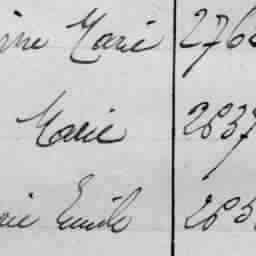 Marie 276
Marie 2837
Emile 285